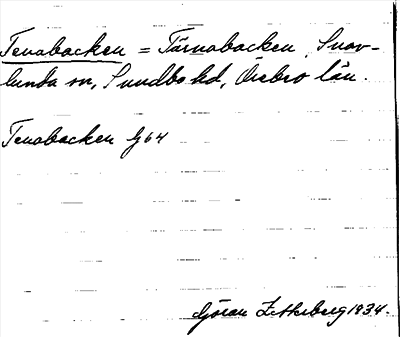 Tenabacken = Tärnabacken, Snav-
lunda sn, Sundbo hd, Örebro län.
Tenabacken G64
Göran Zetterberg 1934.